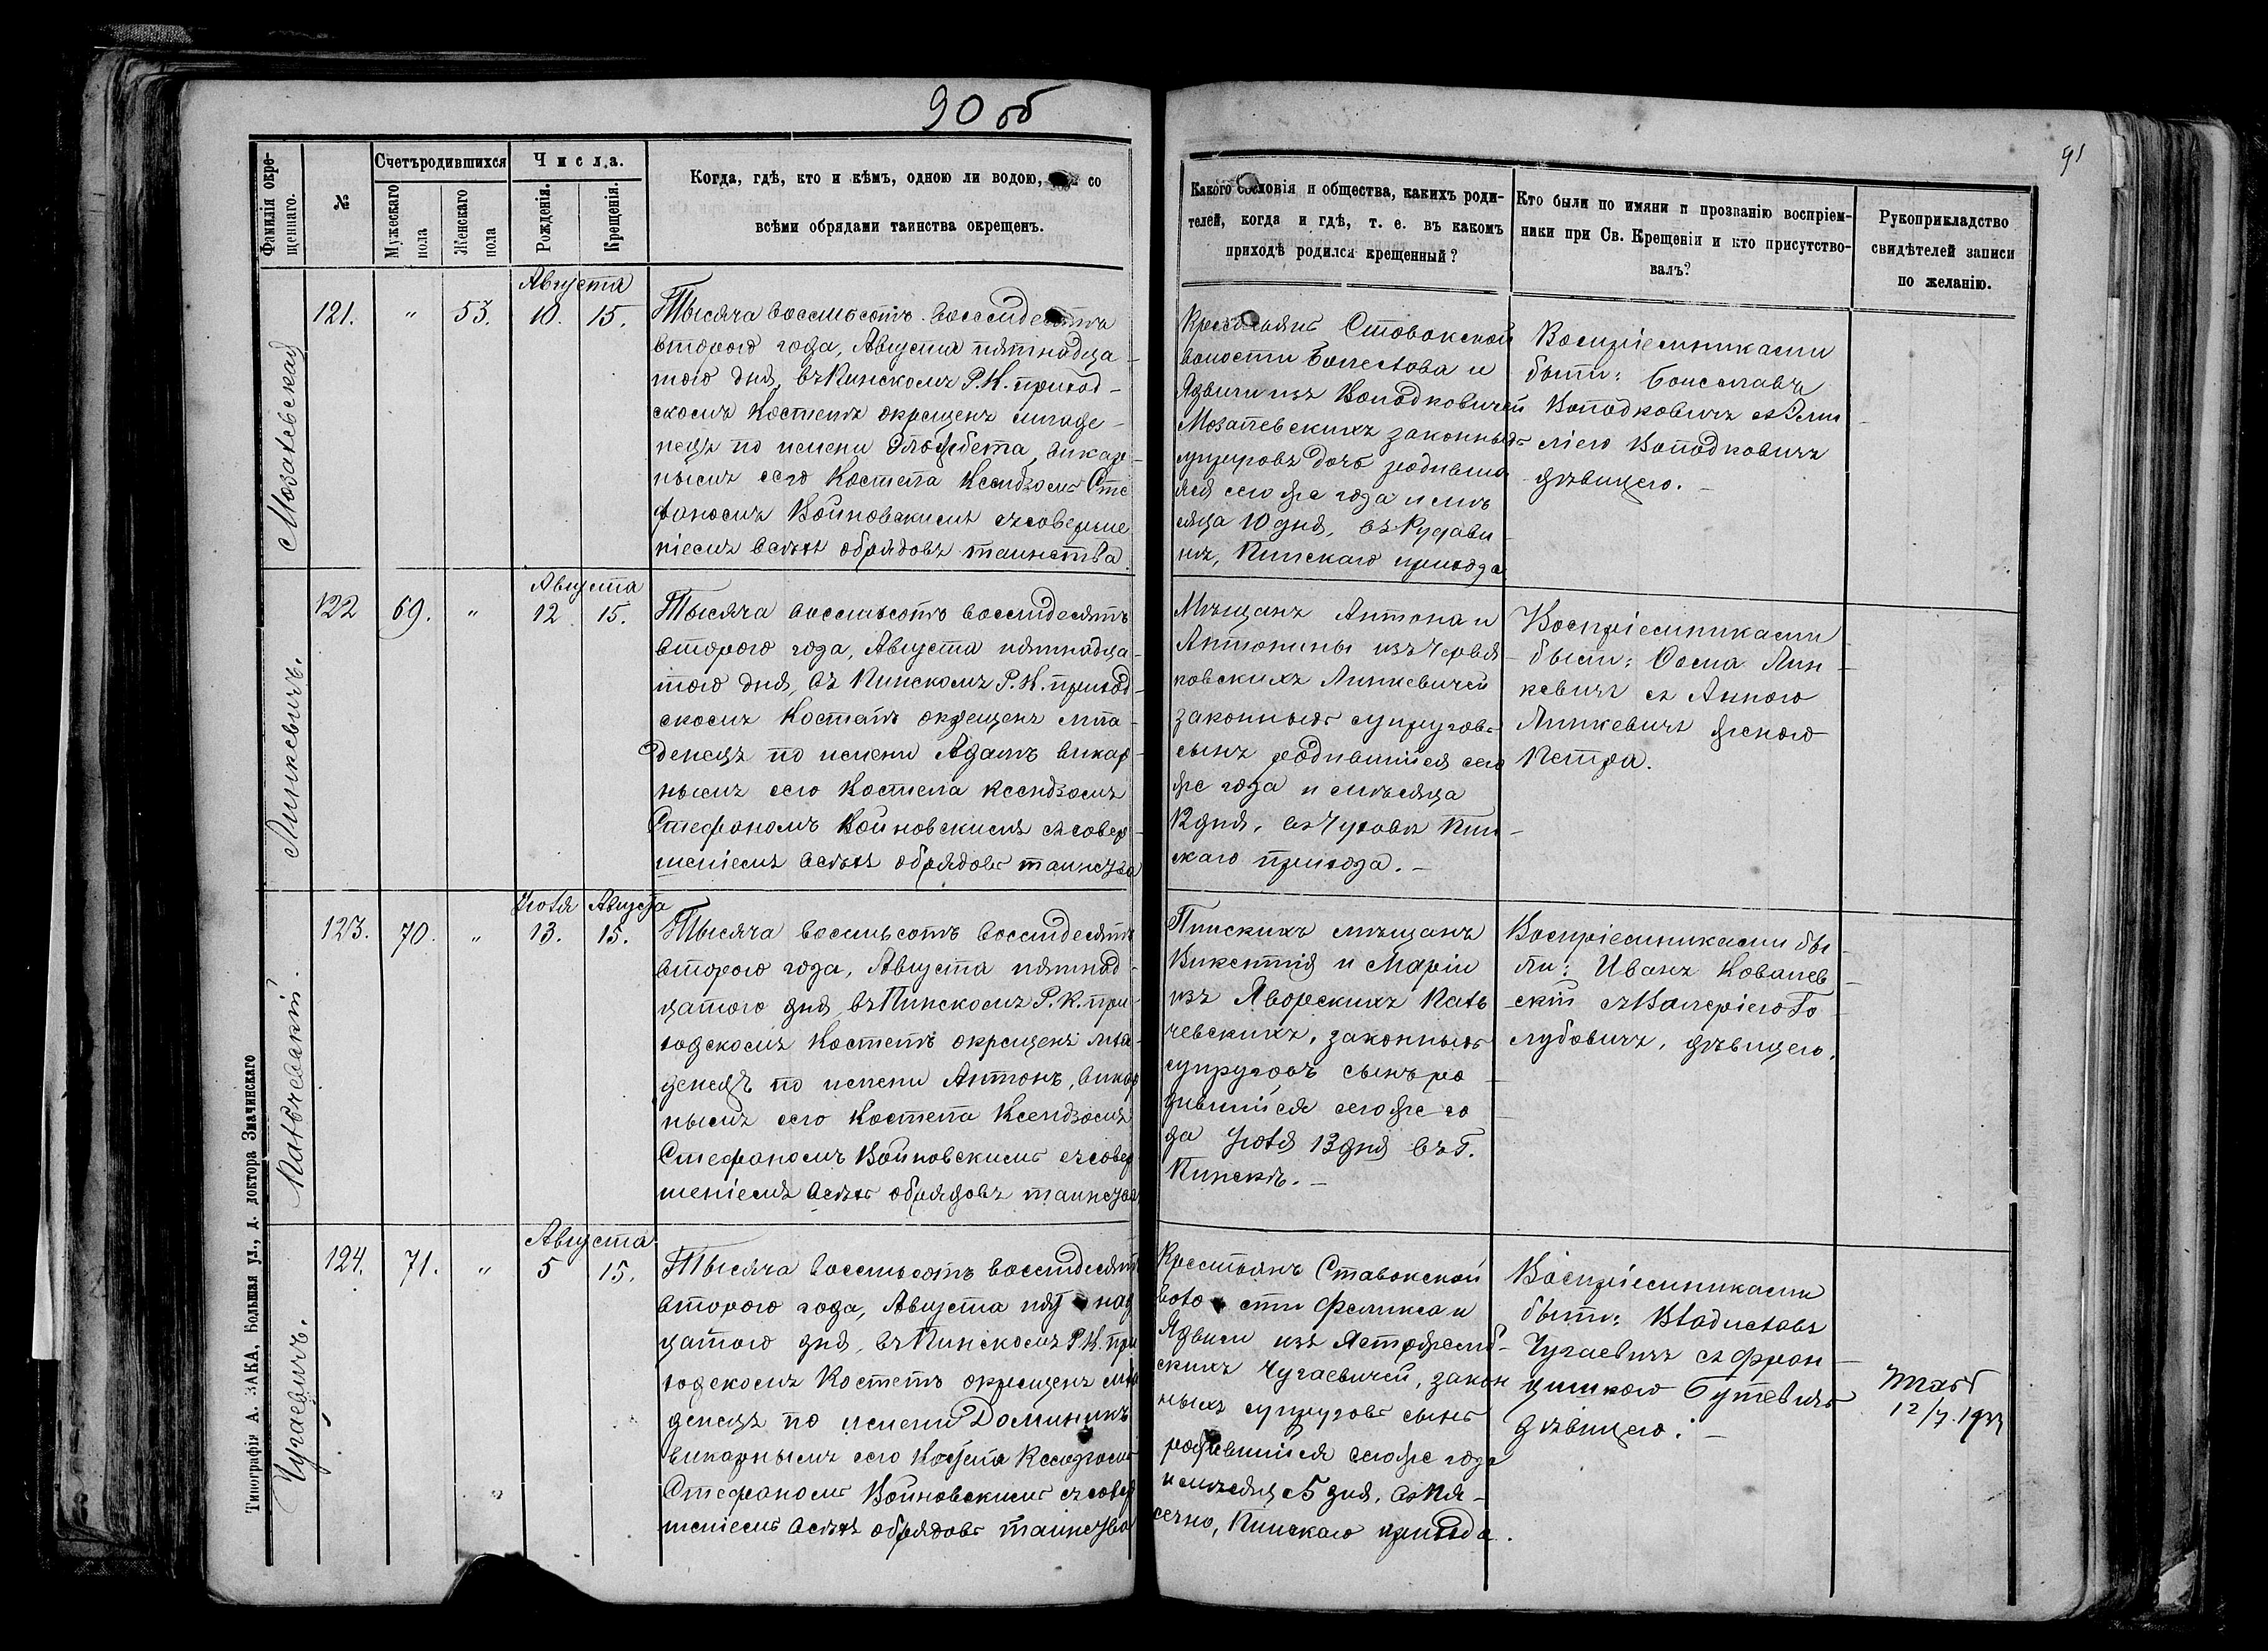 90 об
91
Фамилія окре-
щеннаго.
№
Счетъ родившихся
Мужескаго
пола
Женскаго
пола
Числа.
Рожденія.
Крещенія.
Когда, гдѣ, кто и кѣмъ, одною ли водою, со
всѣми обрядами таинства окрещенъ.
Какого сословія и общества, какихъ роди-
телей, когда и гдѣ, т. е. въ какомъ
приходѣ родился крещенный?
Кто были по имяни и прозванію воспріем-
ники при Св. Крещеніи и кто присутство-
валъ?
Рукоприкладство
свидѣтелей записи
по желанію.
Августа
121. " 53. 10. 15.
Тысяча восемьсотъ восемдесятъ
второго года, Августа пятнадца-
того дня, въ Пинскомъ Р. К. приход-
скомъ Костелѣ окрещенъ младе-
нецъ по имени Эльжбета, викар-
нымъ сего Костела Ксендзомъ Сте
фаномъ Войновскимъ съ соверше
ніемъ всѣхъ обрядовъ таинства
Крестьянъ Ставокской
волости Болеслова и
Ядвиги изъ Колодковичей
Мозалевскихъ законныхъ
супруговъ дочь родивша
яся сего же года и мѣ
сяца 10 дня, въ
Пинскаго прихода
Воспріемниками
были: Болеславъ
Колодковичъ съ Эми
ліею Колодковичъ
дѣвицею. –
Августа
122 69. " 12 15.
Линкевичъ.
Тысяча восемьсотъ восемдесятъ
второго года, Августа пятнадца-
того дня, въ Пинскомъ Р. К. приход-
скомъ Костелѣ окрещенъ мла-
денецъ по имени Адамъ викар-
нымъ сего Костела Ксендзомъ
Стефаномъ Войновскимъ съ совер-
шеніемъ всѣхъ обрядовъ таинства
Мѣщанъ Антона и
Антонины изъ Червя-
ковскихъ Линкевичей
законныхъ супруговъ
сынъ родившійся сего
же года и мѣсяца
12 дня, въ Пин-
скаго прихода. –
Воспріемниками
были: Фома Лин-
кевичъ съ Анною
Линкевичъ женою
Петра.
Іюля Августа
123. 70. " 13. 15.
Пальчевскій.
Тысяча восемьсотъ восемдесятъ
второго года, Августа пятнад-
цатого дня, въ Пинскомъ Р. К. при-
ходскомъ Костелѣ окрещенъ мла-
денецъ по имени Антонъ, викар
нымъ сего Костела Ксендзомъ
Стефаномъ Войновскимъ съ совер
шеніемъ всѣхъ обрядовъ таинства
Пинскихъ мѣщанъ
Викентія и Маріи
изъ Яворскихъ Паль
чевскихъ, законныхъ
супруговъ сынъ ро-
дившійся сего же го
да Іюля 13 дня въ г.
Пинскѣ. –
Воспріемниками бы-
ли: Иванъ Ковалев-
скій съ Валеріею Го
лубовичъ, дѣвицею.
Августа
124. 71. " 5 15.
Чугаевичъ.
Тысяча восемьсотъ восемдесятъ
второго года, Августа пят над
цатого дня, въ Пинскомъ Р. К. при
ходскомъ Костелѣ окрещенъ мла
денецъ по имени Доминикъ
викарнымъ сего Костела Ксендзомъ
Стефаномъ Войновскимъ съ совер
шеніемъ всѣхъ обрядовъ таинства
Крестьянъ Ставокской
воло сти Феликса и
Ядвиги изъ Ястржемб-
скихъ Чугаевичей, закон
ныхъ супруговъ сынъ
родившійся сего же года
и мѣсяца 5 дня, въ Пя-
сечно, Пинскаго прихода.
Воспріемниками
были: Владиславъ
Чугаевичъ съ Фран-
цишкою Бутевичъ
дѣвицею. –
12/7. 1933
Типографія А. ЗАКА, Большая ул., д. доктора Значинскаго